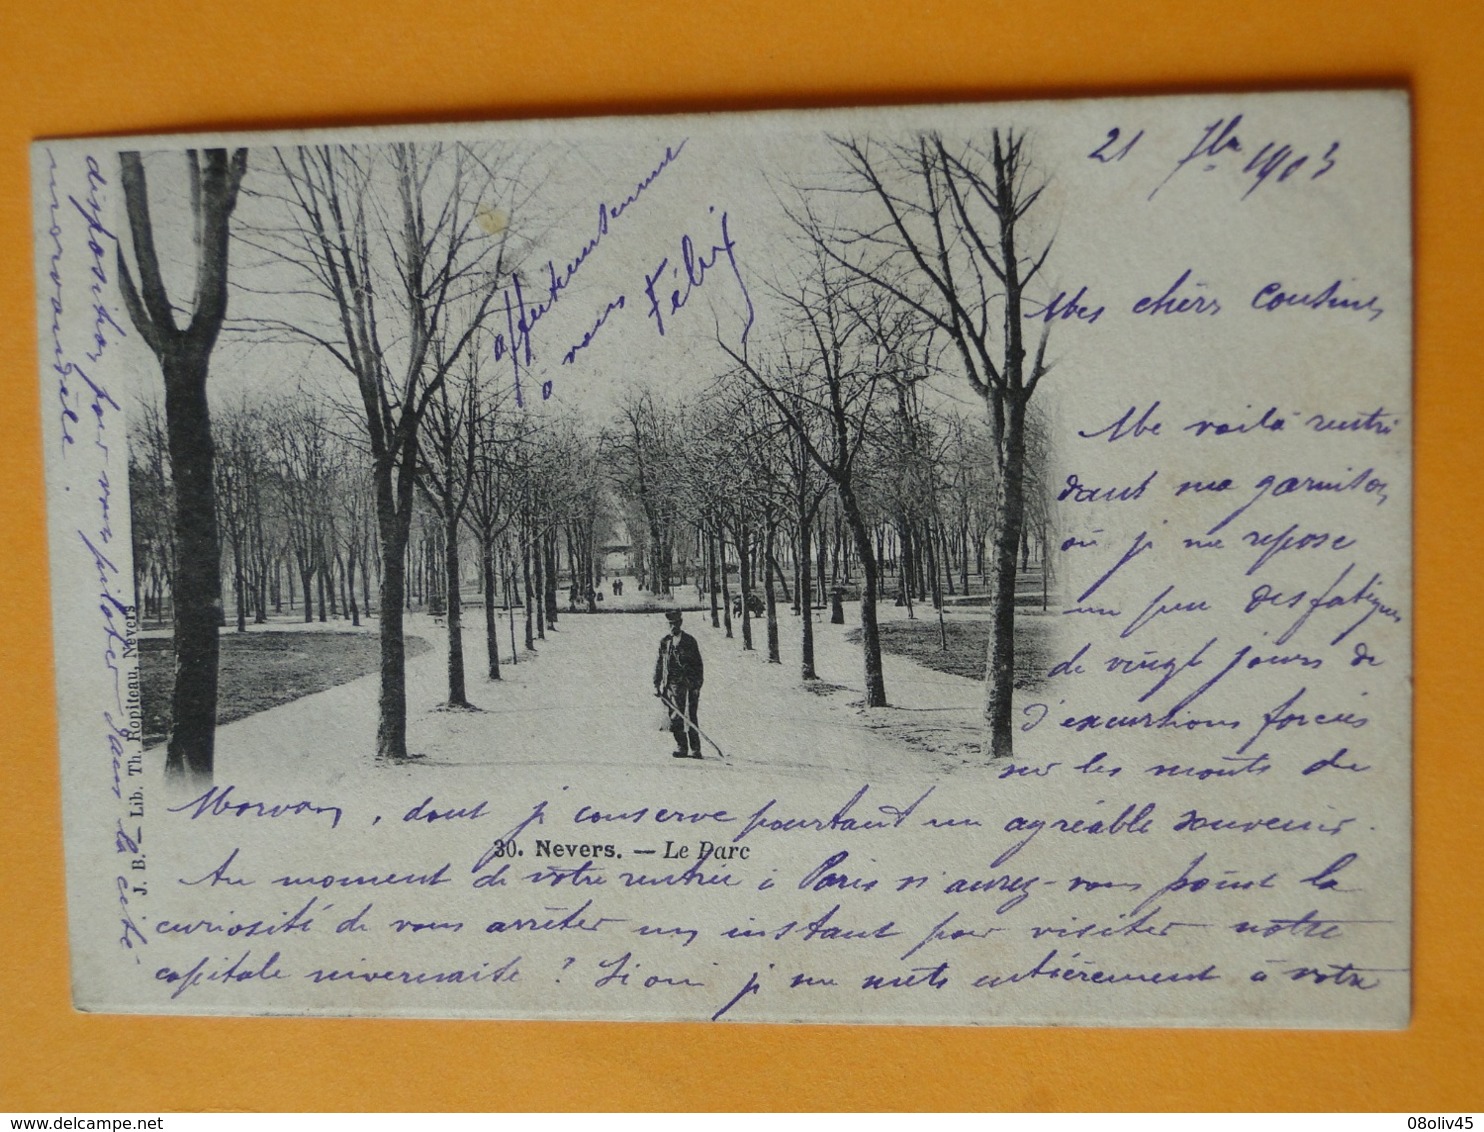 21 7bre 1903
Mes chers Cousins,
Me voilà rentré
dans ma garnison
où je me repose
un peu des fatigues
de vingt jours de
d'excursions forcées
sur les monts du
Morvan, dont je conserve pourtant un agréable souvenir.
30. Nevers. — Le Parc
Au moment de votre rentrée à Paris n'aurez-vous point la
curiosité de vous arrêter un instant pour visiter notre
capitale nivernaise ? Si oui je me mets entièrement à votre
disposition pour vous piloter dans la cité
Affectueusement
à vous
Félix
J. B. — Lib. Th. Ropiteau, Nevers
delcampe.net
08oliv45